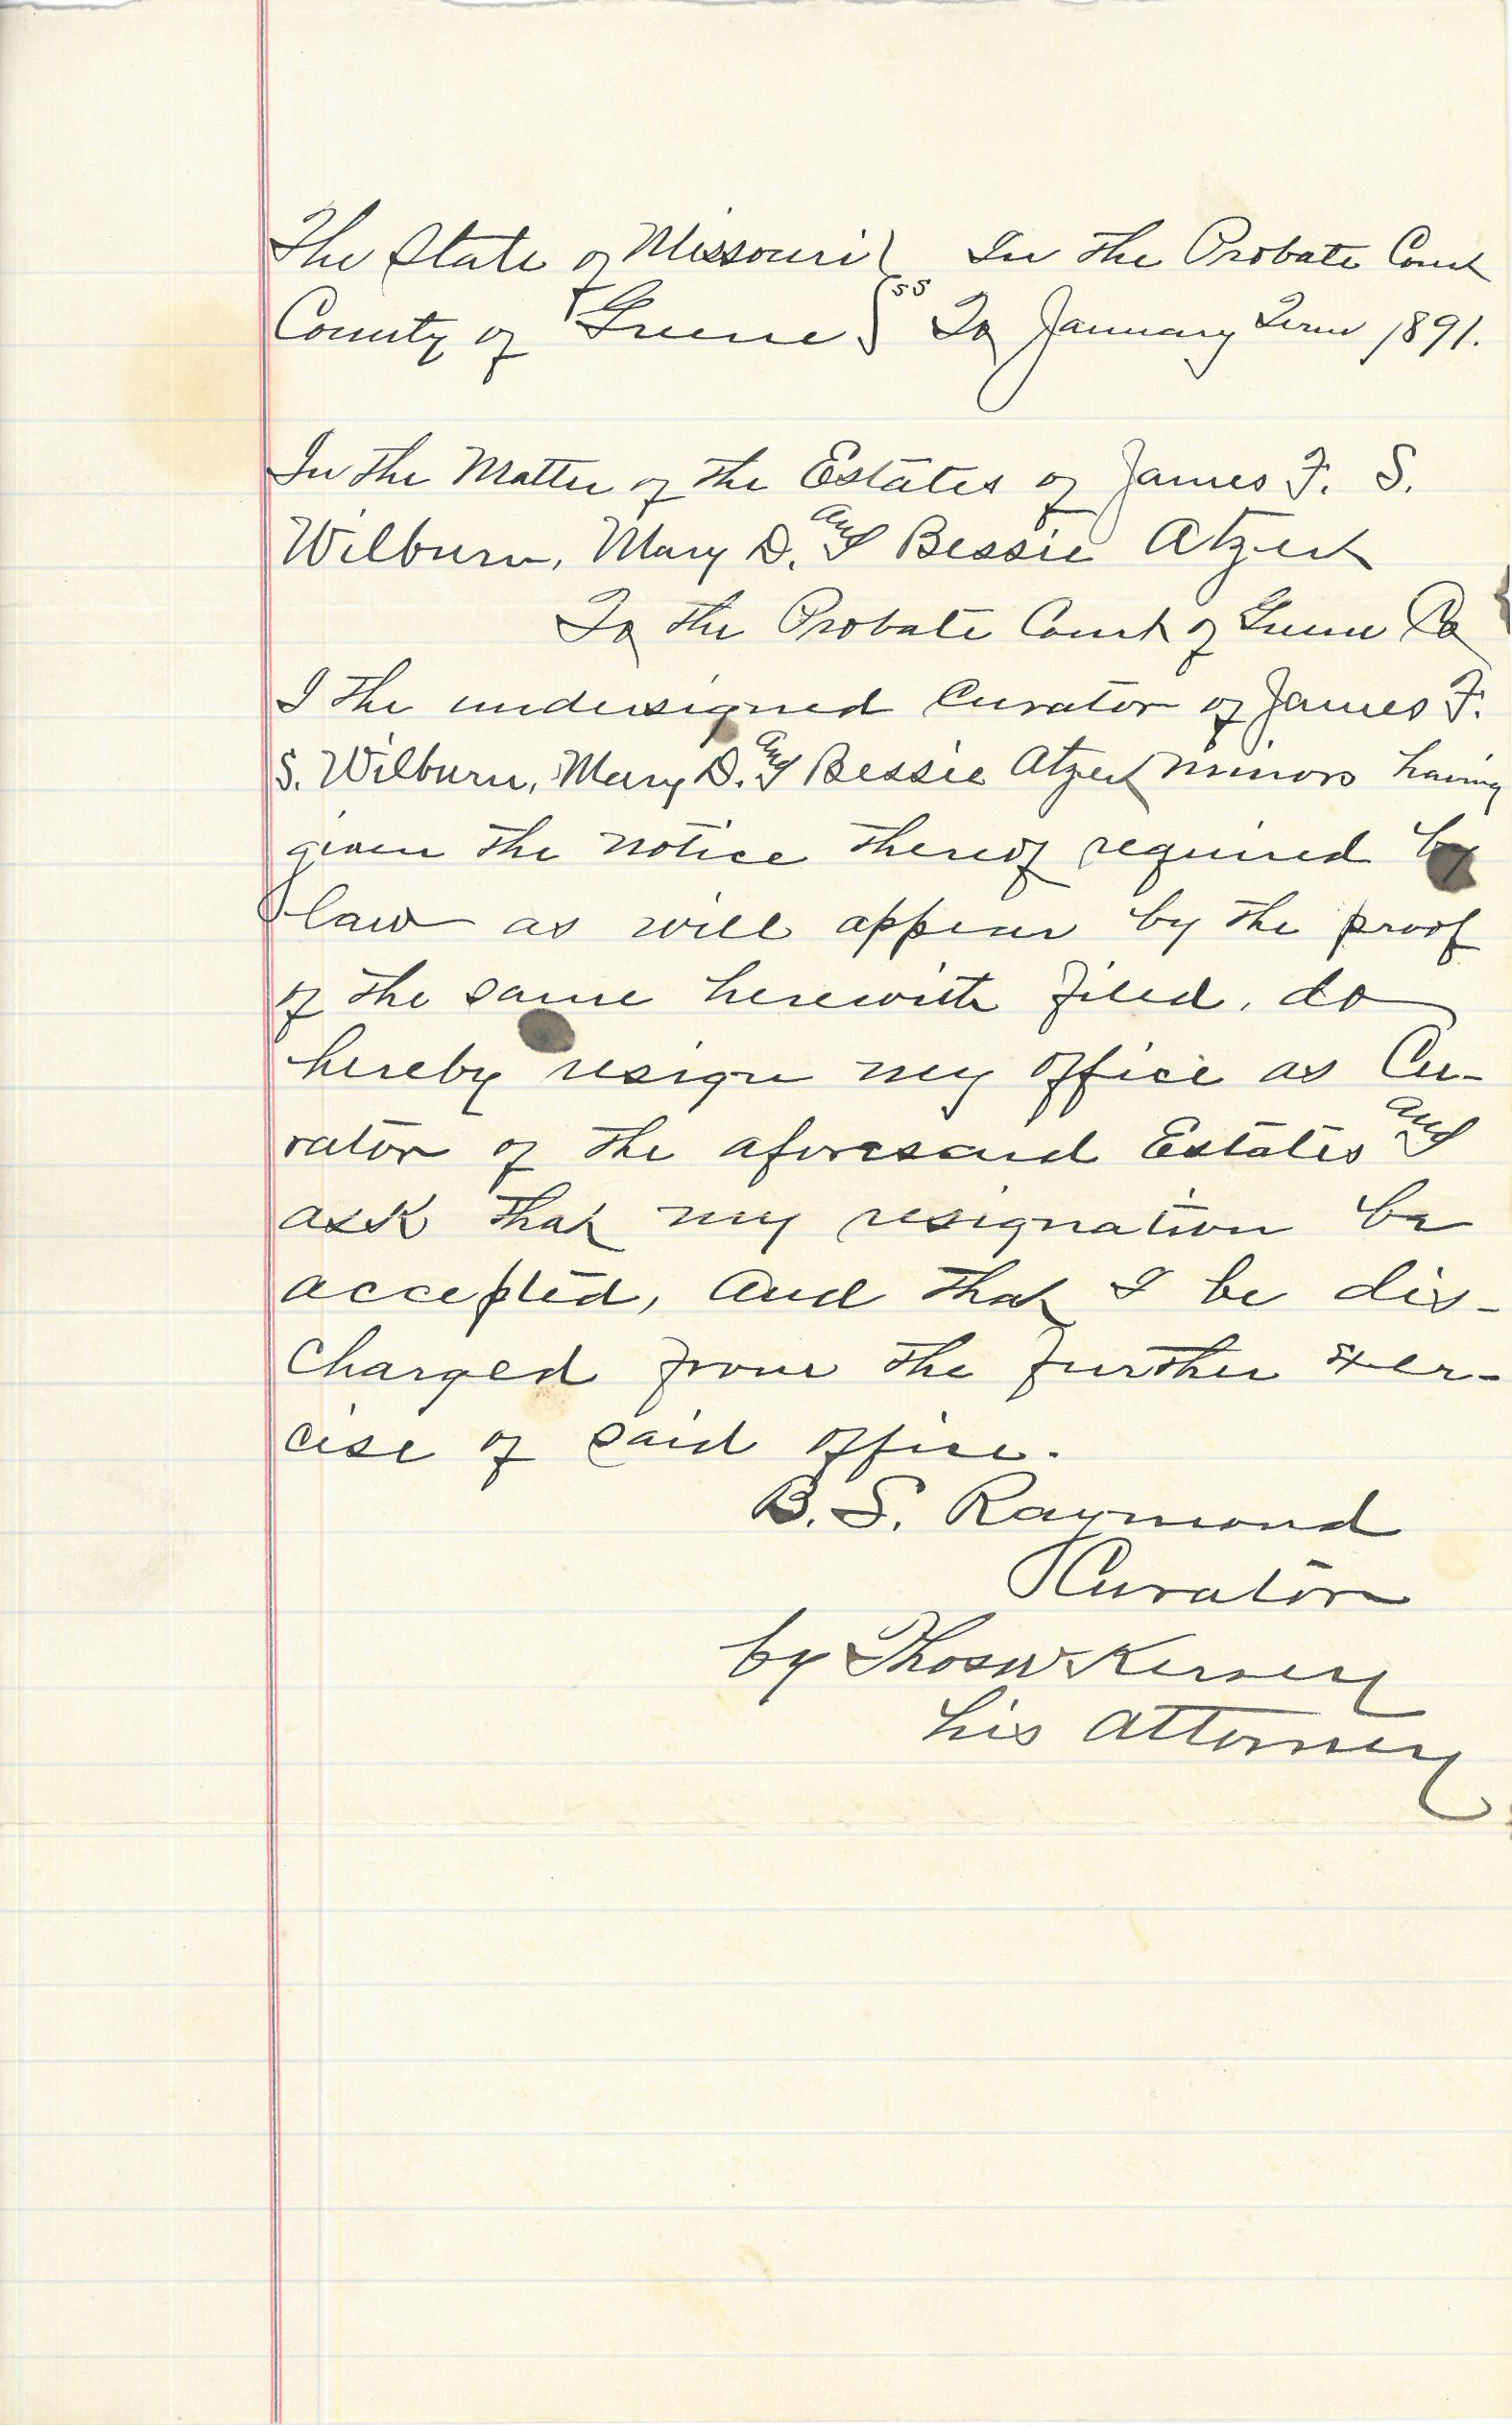 The State of Missouri } In the Probate Court
County of Greene } ss To January Term 1891.
In the Matter of the Estates of James F. S.
Wilburn, Mary D. and Bessie Atzert
To the Probate Court of Greene Co
I the undersigned Curator of James F.
S. Wilburn, Mary D. and Bessie Atzert minors having
given the notice thereof required by
law as will appear by the proof
of the same herewith filed, do
hereby resign my office as Cu-
rator of the aforesaid Estates and
ask that my resignation be
accepted, and that I be dis-
charged from the further exer-
cise of said office.
B. S. Raymond
Curator
by Thos W Kersey
his attorney